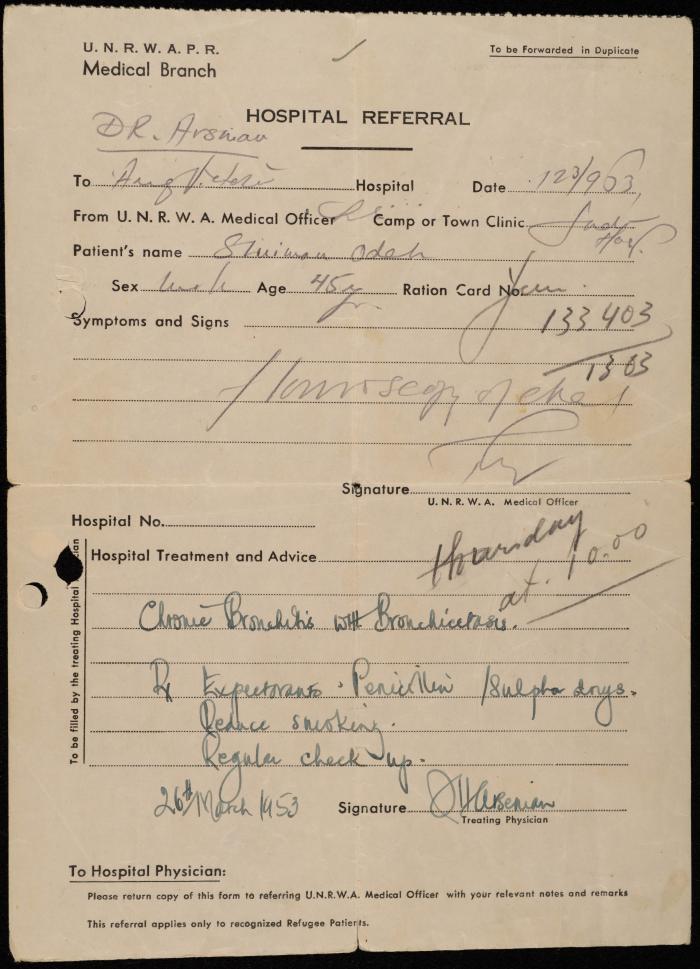 U. N. R. W. A. P. R.
To be Forwarded in Duplicate
Medical Branch
HOSPITAL REFERRAL
DR. Arsinian
To Aug. Victoria Hospital Date 123/953,
From U. N. R. W. A. Medical Officer Camp or Town Clinic
Patient's name Sliman Odeh
Sex Age 45 yr. Ration Card No.
Symptoms and Signs 133.403
1303
of chest
Signature
U. N. R. W. A. Medical Officer
Hospital No.
Hospital Treatment and Advice thoursday
at. 10.00
To be filled by the treating Hospital Physician
Chronic Bronchitis with Bronchicetasis.
Rx Expectorants. Penicillin / Sulpha drugs.
Reduce smoking.
Regular check up.
26th March 1953 Signature Arsenian
Treating Physician
To Hospital Physician:
Please return copy of this form to referring U.N.R.W.A. Medical Officer with your relevant notes and remarks
This referral applies only to recognized Refugee Patients.